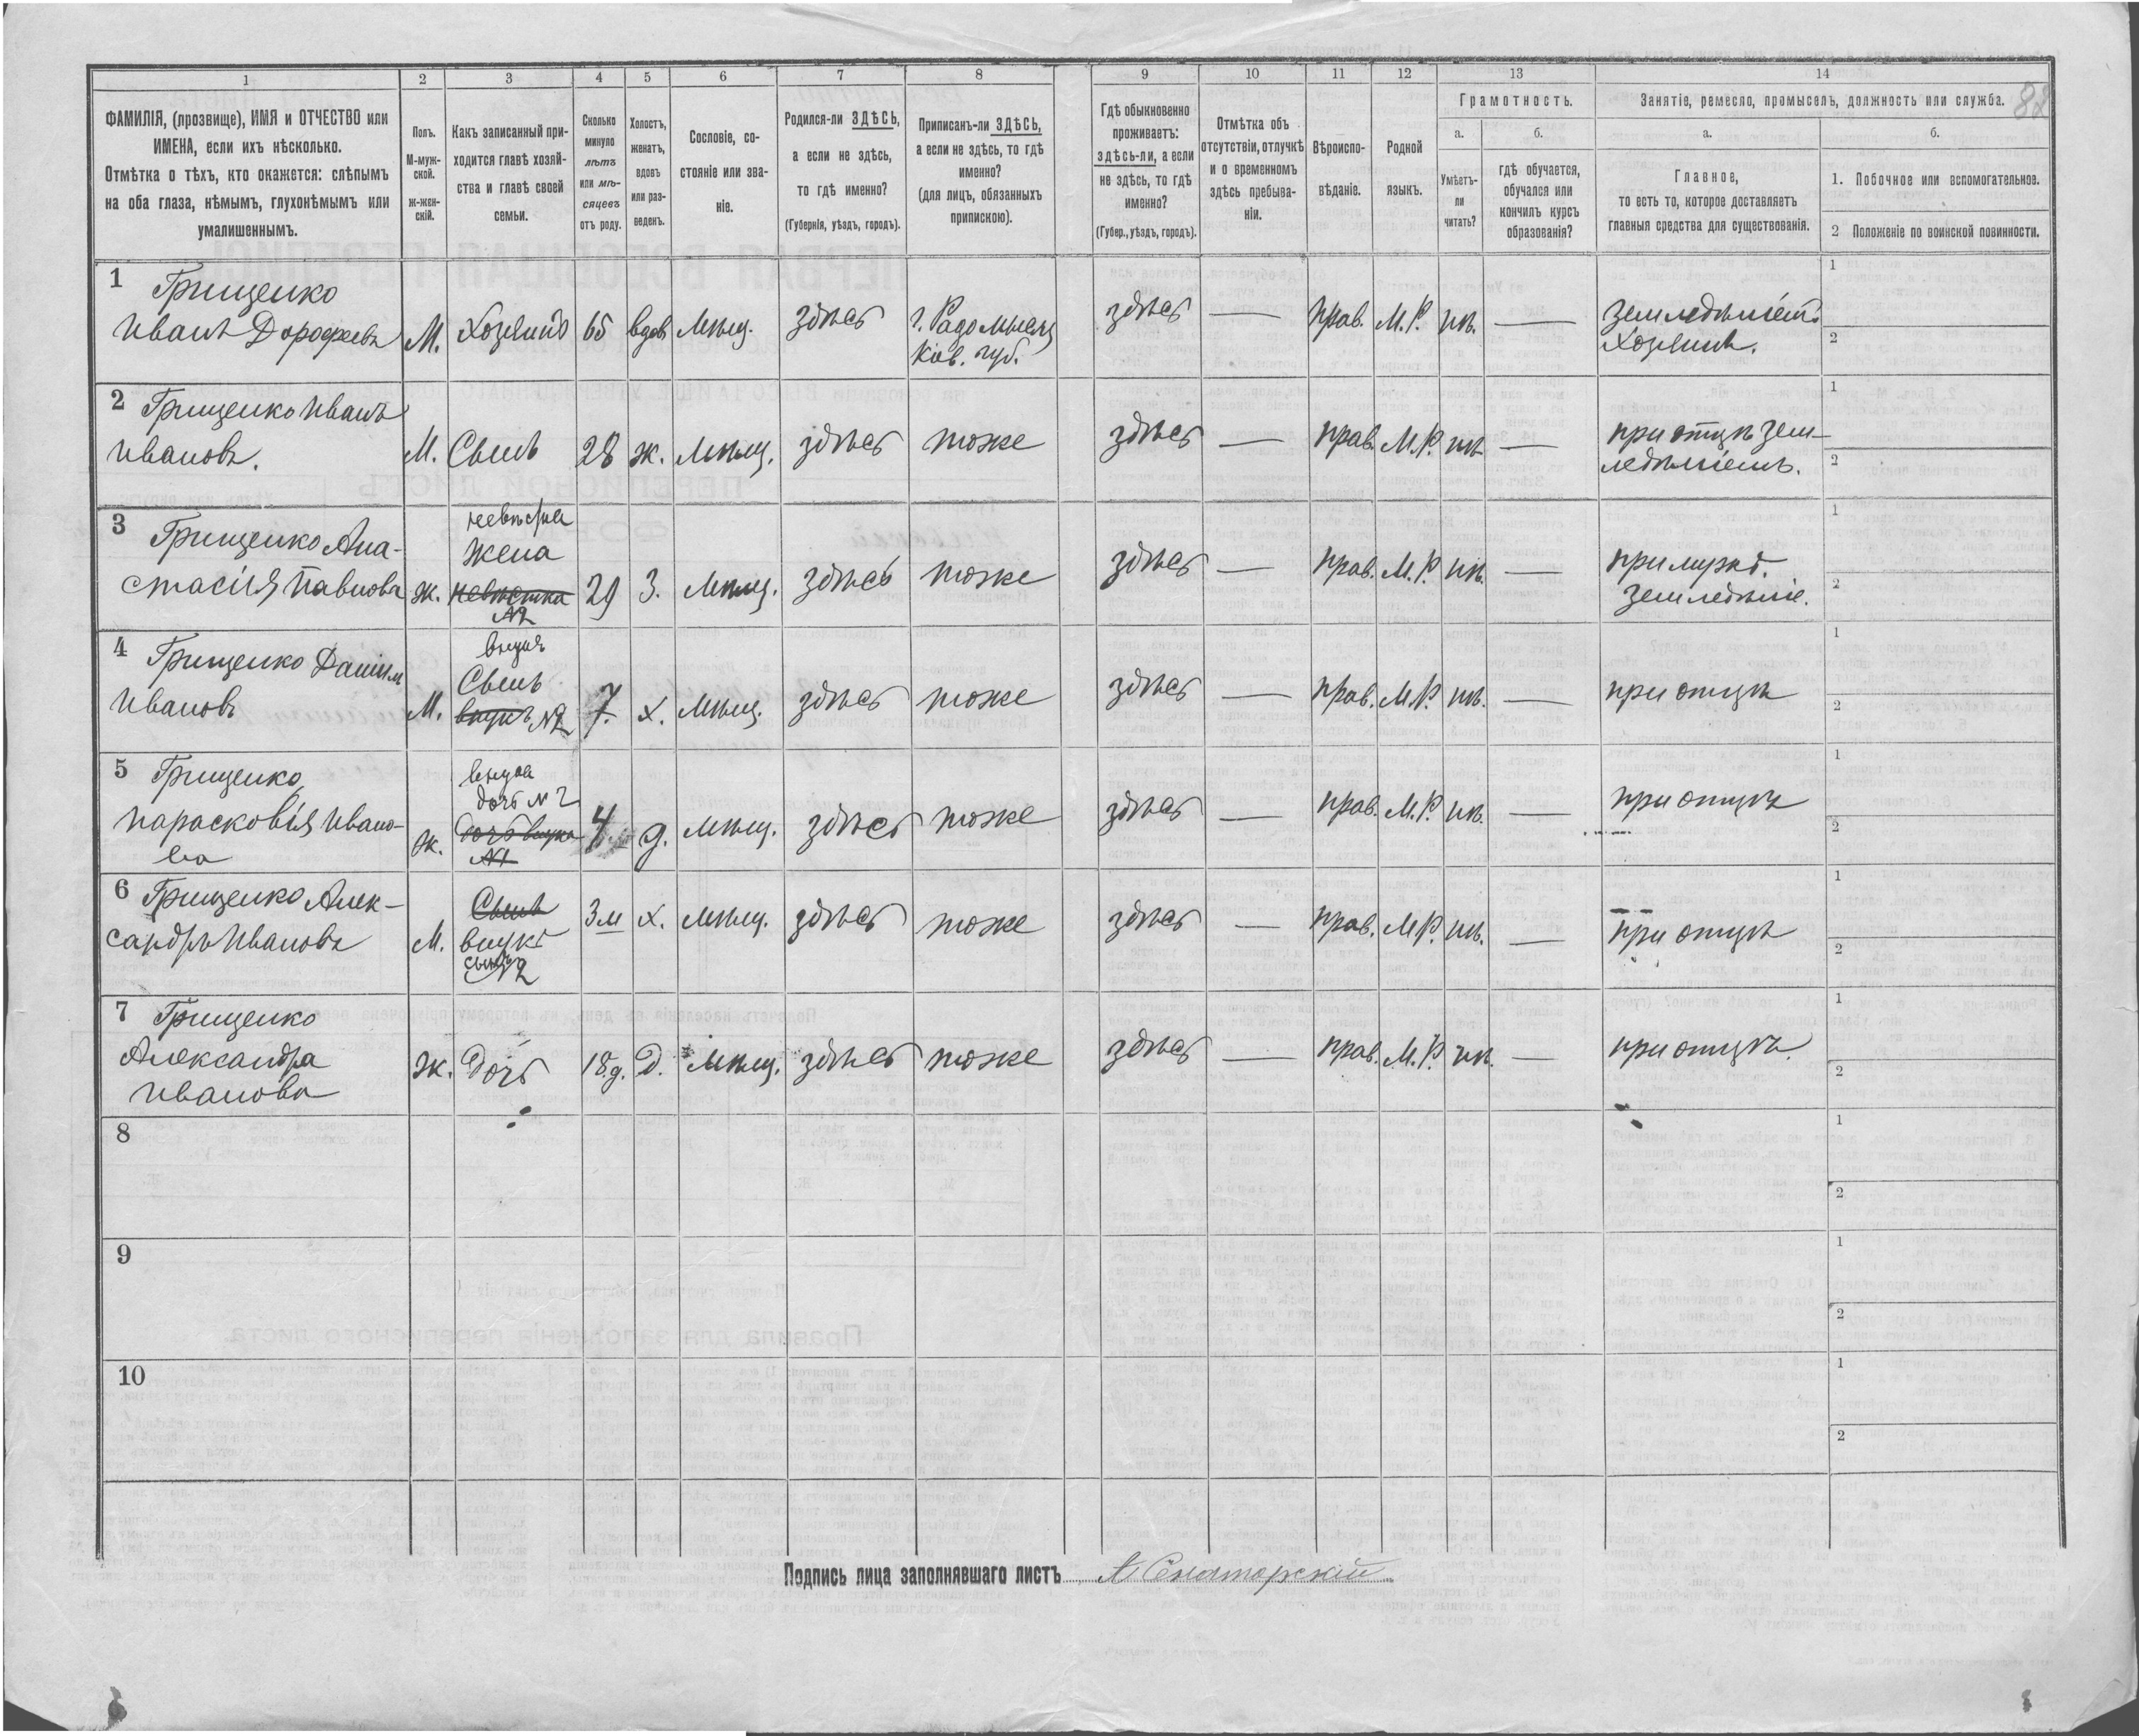 1 2 3 4 5 6 7 8 9 10 11 12 13 14
88
ФАМИЛІЯ, (прозвище), ИМЯ и ОТЧЕСТВО или
ИМЕНА, если ихъ нѣсколько.
Отмѣтка о тѣхъ, кто окажется: слѣпымъ
на оба глаза, нѣмымъ, глухонѣмымъ или
умалишеннымъ.
Полъ.
М-муж-
ской.
ж-жен-
скій.
Какъ записанный при-
ходится главѣ хозяй-
ства и главѣ своей
семьи.
Сколько
минуло
лѣтъ
или мѣ-
сяцевъ
отъ роду.
Холостъ,
женатъ,
вдовъ
или раз-
веденъ.
Сословіе, со-
стояніе или зва-
ніе.
Родился-ли ЗДѢСЬ,
а если не здѣсь,
то гдѣ именно?
(Губернія, уѣздъ, городъ).
Приписанъ-ли ЗДѢСЬ,
а если не здѣсь, то гдѣ
именно?
(для лицъ, обязанныхъ
припискою).
Гдѣ обыкновенно
проживаетъ:
здѣсь-ли, а если
не здѣсь, то гдѣ
именно?
(Губер., уѣздъ, городъ).
Отмѣтка объ
отсутствіи, отлучкѣ
и о временномъ
здѣсь пребыва-
ніи.
Вѣроиспо-
вѣданіе.
Родной
языкъ.
Грамотность.
а.
Умѣетъ-
ли
читать?
б.
гдѣ обучается,
обучался или
кончилъ курсъ
образованія?
Занятіе, ремесло, промыселъ, должность или служба.
а.
Главное,
то есть то, которое доставляетъ
главныя средства для существованія.
б.
1. Побочное или вспомогательное.
2 Положеніе по воинской повинности.
1 Грищенко
Иванъ Дорофеевъ М. Хозяинъ 65 вдов Мѣщ. здѣсь г. Радомысль
Кіев. губ.
здѣсь — Прав. М.Р. нѣ. — Земледѣліем.
Хозяинъ.
1
2
2 Грищенко Иванъ
Ивановъ. М. Сынъ 28 ж. Мѣщ. здѣсь тоже здѣсь — прав. М.Р. нѣ — при отцѣ зем-
ледѣліемъ.
1
2
3 Грищенко Ана-
стасія Павлова ж. невѣстка
жена
невѣстка
№2
29 З. Мѣщ. здѣсь тоже здѣсь — прав. М.Р. нѣ. — при мужѣ.
Земледѣліе.
1
2
4 Грищенко Даніил
Ивановъ М. внукъ
Сынъ
внукъ №2
7. х. Мѣщ. здѣсь тоже здѣсь — прав. М.Р. нѣ. — при отцѣ
1
2
5 Грищенко
Парасковія Ивано-
ва ж. внука
дочь №2
дочь внука
№1
4 д. Мѣщ. здѣсь тоже здѣсь — прав. М.Р. нѣ. — при отцѣ
1
2
6 Грищенко Алек-
сандръ Ивановъ М. Сынъ
внукъ
сынъ №2
3 м х. Мѣщ. здѣсь тоже здѣсь — прав. М.Р. нѣ. — при отцѣ
1
2
7 Грищенко
Александра
Иванова ж. Дочь 18.д. Д. Мѣщ. здѣсь тоже здѣсь — прав. М.Р. нѣ. — при отцѣ.
1
2
8
1
2
9
1
2
10
1
2
Подпись лица заполнявшаго листъ А Сенаторскій